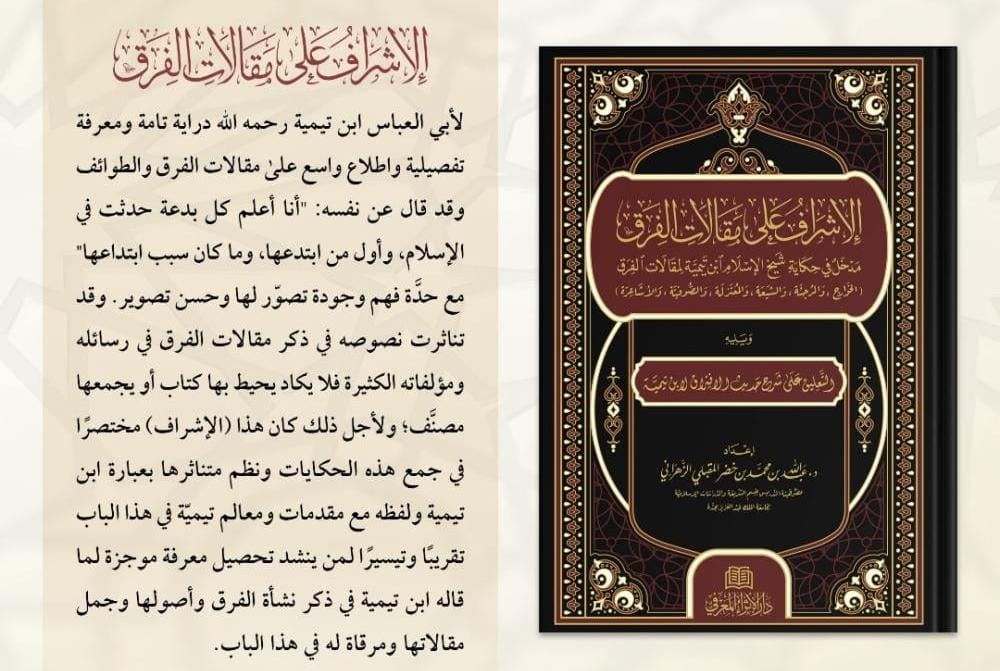 الإشراف على مقالات الفرق
لأبي العباس ابن تيمية رحمه الله دراية تامة ومعرفة
تفصيلية واطلاع واسع علىٰ مقالات الفرق والطوائف
وقد قال عن نفسه: "أنا أعلم كل بدعة حدثت في
الإسلام، وأول من ابتدعها، وما كان سبب ابتداعها"
مع حدَّة فهم وجودة تصوّر لها وحسن تصوير. وقد
تناثرت نصوصه في ذكر مقالات الفرق في رسائله
ومؤلفاته الكثيرة فلا يكاد يحيط بها كتاب أو يجمعها
مصنَّف؛ ولأجل ذلك كان هذا (الإشراف) مختصرًا
في جمع هذه الحكايات ونظم متناثرها بعبارة ابن
تيمية ولفظه مع مقدمات ومعالم تيميّة في هذا الباب
تقريبًا وتيسيرًا لمن ينشد تحصيل معرفة موجزة لما
قاله ابن تيمية في ذكر نشأة الفرق وأصولها وجمل
مقالاتها ومرقاة له في هذا الباب.
الإشرافُ على مقالات الفِرَق
مَدخَلٌ في حكايةِ شَيْخِ الإسْلَامِ ابْنِ تَيْمِيَّة لِمَقالات الفِرَق
(الخَوَارِج، وَالمُرجئَة، وَالشِّيعَة، وَالمُعْتَزِلَة، وَالصُّوفِيَّة، وَالأشَاعِرَة)
وَيَلِيهِ
التَّعليق عَلى شرح حَديث الافتراق لابن تَيميَّة
إعْدَاد
د. عَبدالله بن محمد بن خضر المقبلي الزَّهراني
عضو هيئة التدريس بقسم الشريعة والدراسات الإسلامية
بجامعة الملك عبد العزيز بجدة
دار الإثراء المعرفي